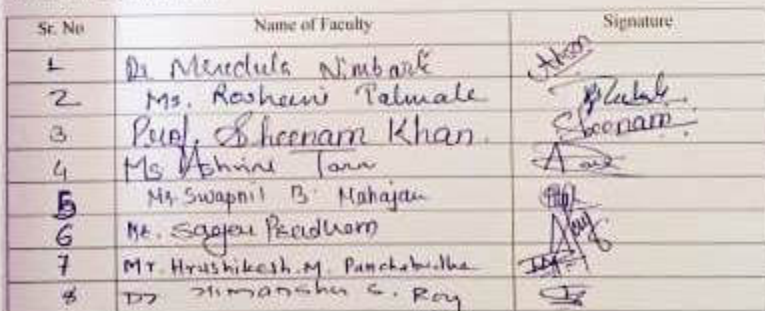 Sr. No Name of Faculty Signature
1 Dr Mredula Nimbark
2 Ms. Rosheni Talmale
3 Prof. Sheenam Khan. Sheenam
4 Ms Ashvini
5 Mr. Swapnil B. Mahajan
6 Mr. Sagar Pradhan
7 Mr. Hrushikesh. M. Panchabudhe
8 Dr Himanshu S. Roy